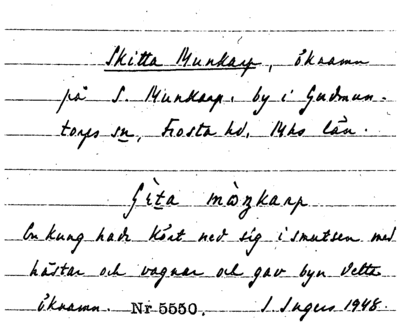 Skitta Munkarp, öknamn
på S. Munkarp, by i Gudmun-
torps sn, Frosta hd, Mhs län.
mòŋkarp
En kung hade kört ned sig i smutsen med
hästar och vagnar och gav byn detta
öknamn. Nr 5550. I. Ingers 1948.